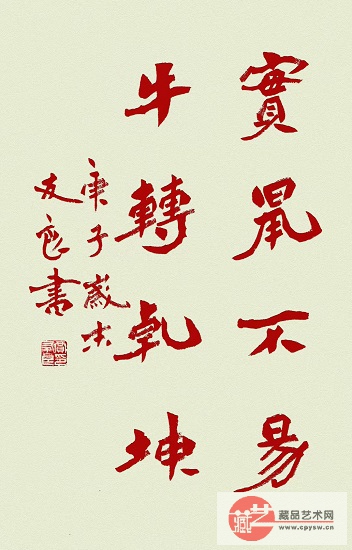 實鼠不易
牛轉乾坤
庚子歲末
友良書
藏艺
藏品艺术网
www.cpysw.cn